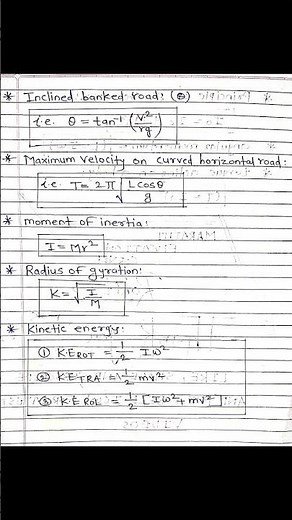 * Inclined banked road: (θ)
i.e. θ = tan⁻¹ (v²/rg)
* Maximum velocity on curved horizontal road:
i.e. T = 2π √(L cosθ/g)
* moment of inertia:
I = Mr²
* Radius of gyration:
K = √(I/M)
* Kinetic energy:
① K.E ROT = 1/2 Iω²
② K.E TRA = 1/2 mv²
③ K.E ROL = 1/2 [Iω² + mv²]